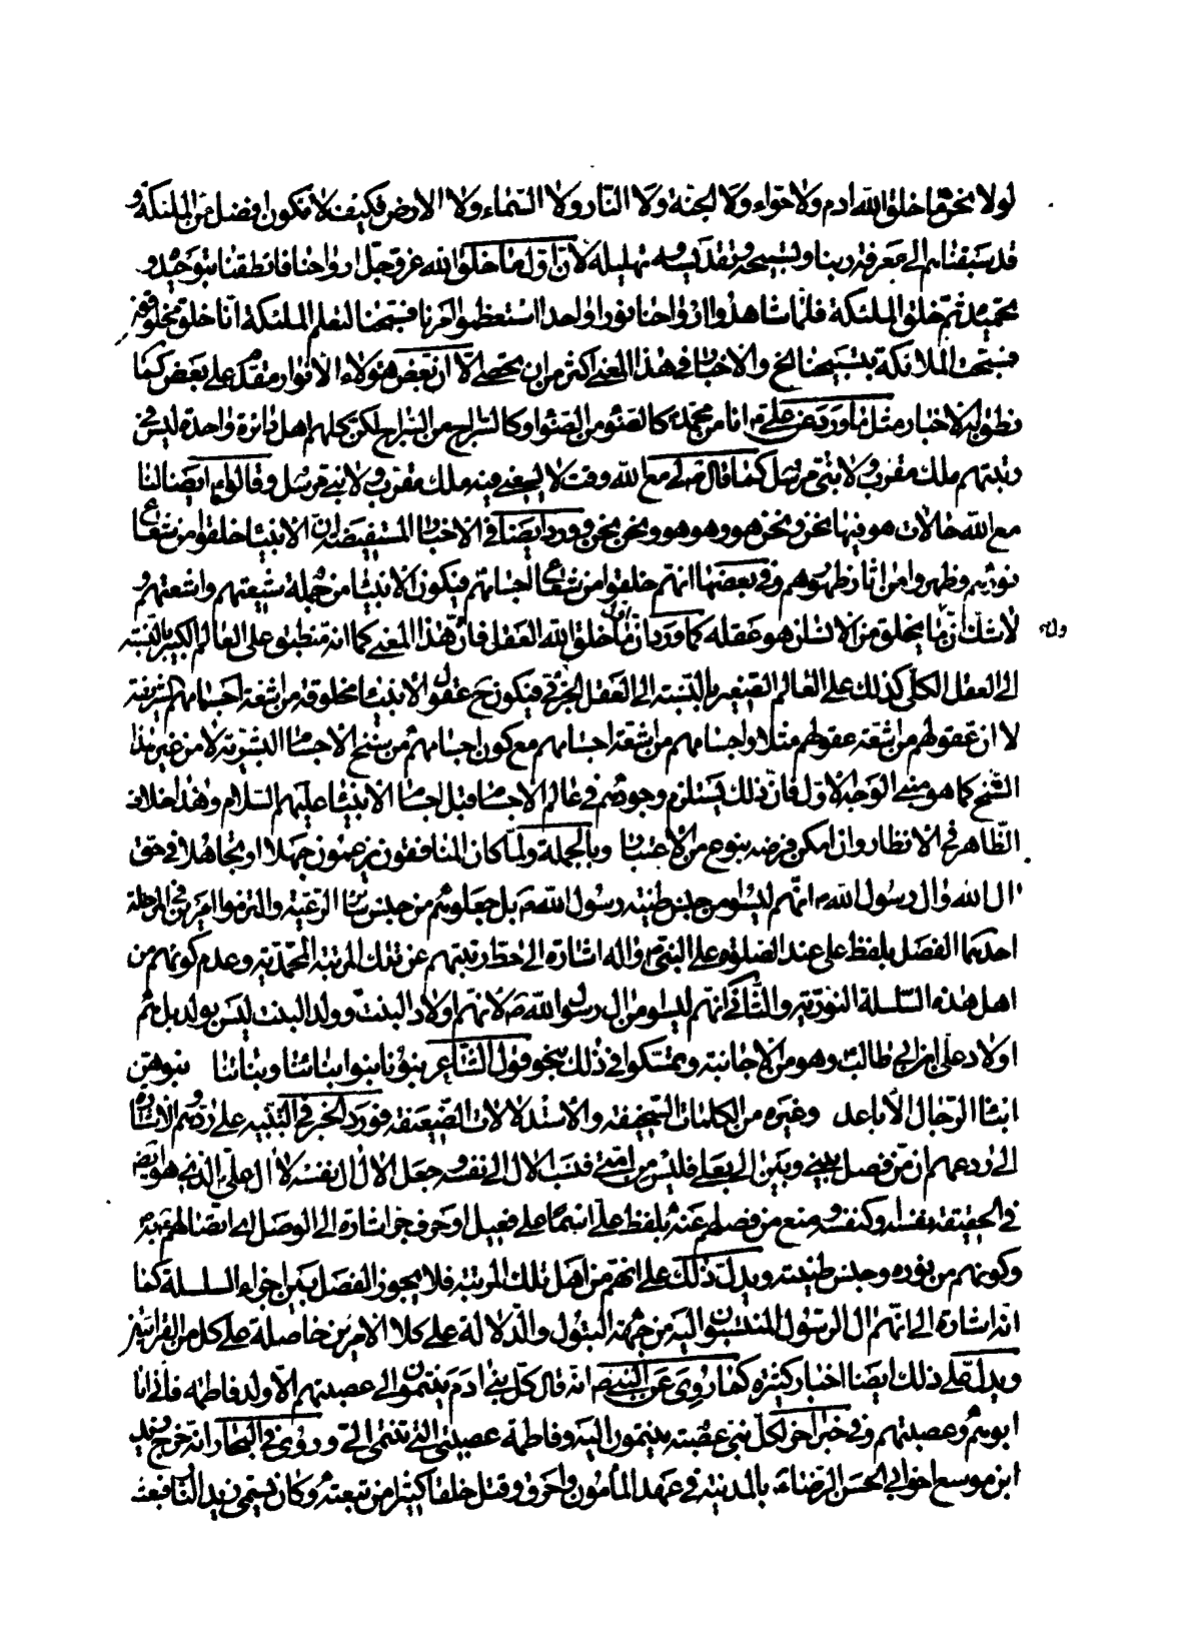 لولا نحن ما خلق الله ادم ولا حواء ولا الجنة ولا النار ولا السماء ولا الارض فكيف لا نكون افضل من الملئكة و
قد سبقناهم الى معرفة ربنا وتسبيحه وتقديسه وتهليله لان اول ما خلق الله عز وجل ارواحنا فانطقنا بتوحيده و
تحميده ثم خلق الملئكة فلما شاهدوا ارواحنا نورا واحدا استعظموا امرنا فسبحنا لتعلم الملئكة انا خلق مخلوقون
فسبحت الملائكة بتسبيحنا الخ والاخبار في هذا المعنى اكثر من ان تحصى الا ان بعض هؤلاء الانوار مقدم على بعض كما
نطق به الاخبار مثل ما ورد عن علي ع انا من محمد ص كالصنو من الصنو او كالسراج من السراج لكن كلهم اهل دائرة واحدة ليس في
رتبتهم ملك مقرب ولا نبي مرسل كما قال ص لي مع الله وقت لا يسعني فيه ملك مقرب ولا نبي مرسل وقالوا ع ايضا لنا
مع الله حالات هو فيها نحن ونحن هو وهو هو ونحن نحن وورد ايضا في الاخبار المستفيضة ان الانبياء خلقوا من شعاع
نورهم وظهروا من اثار ظهورهم وفي بعضها انهم خلقوا من شعاع اجسامهم فيكون الانبياء من جملة شيعتهم واشعتهم و
لا شك ان اول ما يخلق من الانسان هو عقله كما ورد ان اول ما خلق الله العقل فان هذا المعنى كما انه منطبق على العالم الكبير بالنسبة
الى العقل الكلي كذلك على العالم الصغير بالنسبة الى العقل الجزئي فيكون ح عقول الانبياء مخلوقة من اشعة اجسامهم الشريفة
لا ان عقولهم من اشعة عقولهم مثلا واجسامهم من اشعة اجسامهم مع كون اجسامهم من سنخ الاجسام البشرية لا من غير هذا
السنخ كما هو مبنى الوجه الاول فان ذلك يستلزم وجودهم في عالم الاجسام قبل اجسام الانبياء عليهم السلام وهذا خلاف
الظاهر في الانظار وان امكن فرضه بنوع من الاعتبار وبالجملة ولما كان المنافقون يزعمون جهلا او تجاهلا في حق
ال الله وال رسول الله ص انهم ليسوا من جنس طينة رسول الله ص بل جعلوهم من جنس سائر الرعية والتزموا امرين في المرحلة
احدهما الفصل بلفظ على عند الصلوة على النبي ص واله اشارة الى حط رتبتهم عن تلك المرتبة المحمدية وعدم كونهم من
اهل هذه السلسلة النورية والثاني انهم ليسوا من ال رسول الله ص لانهم اولاد البنت وولد البنت ليس بولد بل هم
اولاد علي بن ابي طالب ع وهو من الاجانب وتمسكوا في ذلك بنحو قول الشاعر بنونا بنوا ابنائنا وبناتنا بنوهن
ابناء الرجال الاباعد وغيره من الكلمات السخيفة والاستدلالات الضعيفة فورد الخبر في التنبيه على ردهم والاشارة
الى ردعهم ان من فصل بيني وبين الي بعلى فليس من امتي فنسب الال الى نفسه وجعل الال ال نفسه لا ال علي الذي هو ايضا
في الحقيقة نفسه او كنفسه ومنع من فصلهم عنه بلفظ على اسما على فعيل او حرف جر اشارة الى الوصل اي اتصالهم به
وكونهم من نوره وجنس طينته ويدل ذلك على انهم من اهل تلك المرتبة فلا يجوز الفصل بين اجزاء السلسلة كما
انه اشارة الى انهم ال الرسول المنتسبون اليه من جهة البتول والدلالة على كلا الامرين حاصلة على كل من القرائتين
ويدل على ذلك ايضا اخبار كثيرة كما روي عن النبي ص انه قال كل بني ادم ينتمون الى عصبتهم الا ولد فاطمة فاني انا
ابوهم وعصبتهم وفي خبر اخر لكل نبي عصبة ينتمون اليه وفاطمة عصبتي التي تنتمي الي وروي في البحار انه خرج زيد
ابن موسى اخو ابي الحسن الرضا ع بالمدينة في عهد المأمون واحرق وقتل خلقا كثيرا من تبعته وكان يسمى زيد النار فبعث
وله